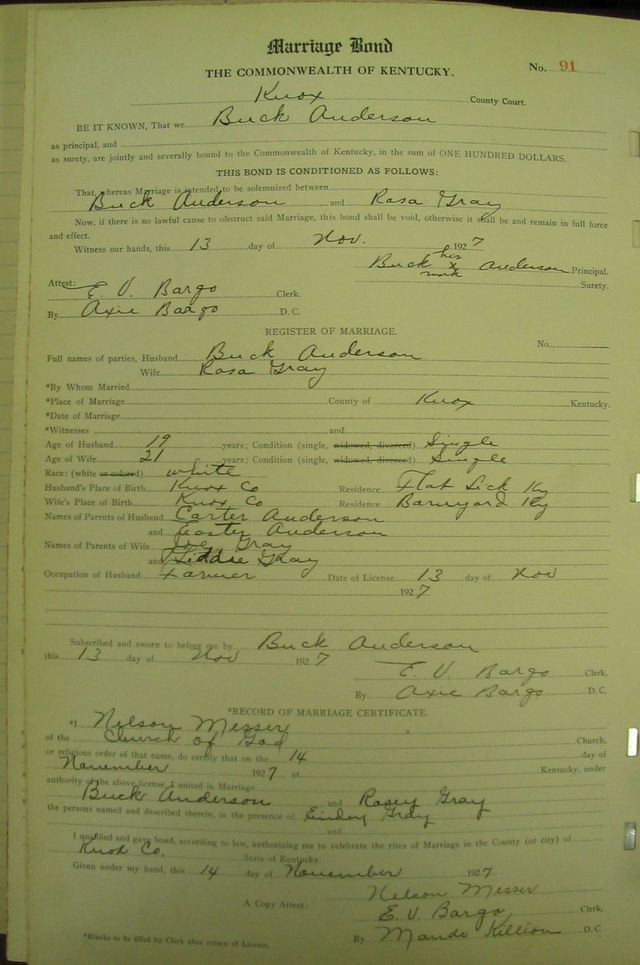 Marriage Bond
No. 91
THE COMMONWEALTH OF KENTUCKY.
Knox County Court.
BE IT KNOWN, That we Buck Anderson
as principal, and
as surety, are jointly and severally bound to the Commonwealth of Kentucky, in the sum of ONE HUNDRED DOLLARS.
THIS BOND IS CONDITIONED AS FOLLOWS:
That, whereas Marriage is intended to be solemnized between
Buck Anderson and Rosa Gray
Now, if there is no lawful cause to obstruct said Marriage, this bond shall be void, otherwise it shall be and remain in full force
and effect.
Witness our hands, this 13 day of Nov. 1927
Buck his x mark Anderson Principal.
Surety.
Attest:
E. V. Bargo Clerk.
By Axie Bargo D. C.
REGISTER OF MARRIAGE.
No.
Full names of parties, Husband Buck Anderson
Wife Rosa Gray
*By Whom Married
*Place of Marriage County of Knox Kentucky.
*Date of Marriage
*Witnesses and
Age of Husband 19 years; Condition (single, widowed, divorced) Single
Age of Wife 21 years; Condition (single, widowed, divorced) Single
Race: (white or colored) white
Husband's Place of Birth Knox Co Residence Flat Lick Ky
Wife's Place of Birth Knox Co Residence Barnyard Ky
Names of Parents of Husband Carter Anderson
and Easter Anderson
Names of Parents of Wife Joe Gray
and Liddie Gray
Occupation of Husband Farmer Date of License 13 day of Nov
1927.
Subscribed and sworn to before me by Buck Anderson
this 13 day of Nov 1927
E. V. Bargo Clerk,
By Axie Bargo D. C.
*RECORD OF MARRIAGE CERTIFICATE.
*I Nelson Messer a
of the Church of God Church,
or religious order of that name, do certify that on the 14 day of
November 1927, at Kentucky, under
authority of the above license, I united in Marriage
Buck Anderson and Rosey Gray
the persons named and described therein, in the presence of Gray
and
I qualified and gave bond, according to law, authorizing me to celebrate the rites of Marriage in the County (or city) of
Knox Co. State of Kentucky.
Given under my hand, this 14 day of November 1927
Nelson Messer
A Copy Attest: E. V. Bargo, Clerk,
By Maude Killion D. C.
*Blanks to be filled by Clerk after return of License.